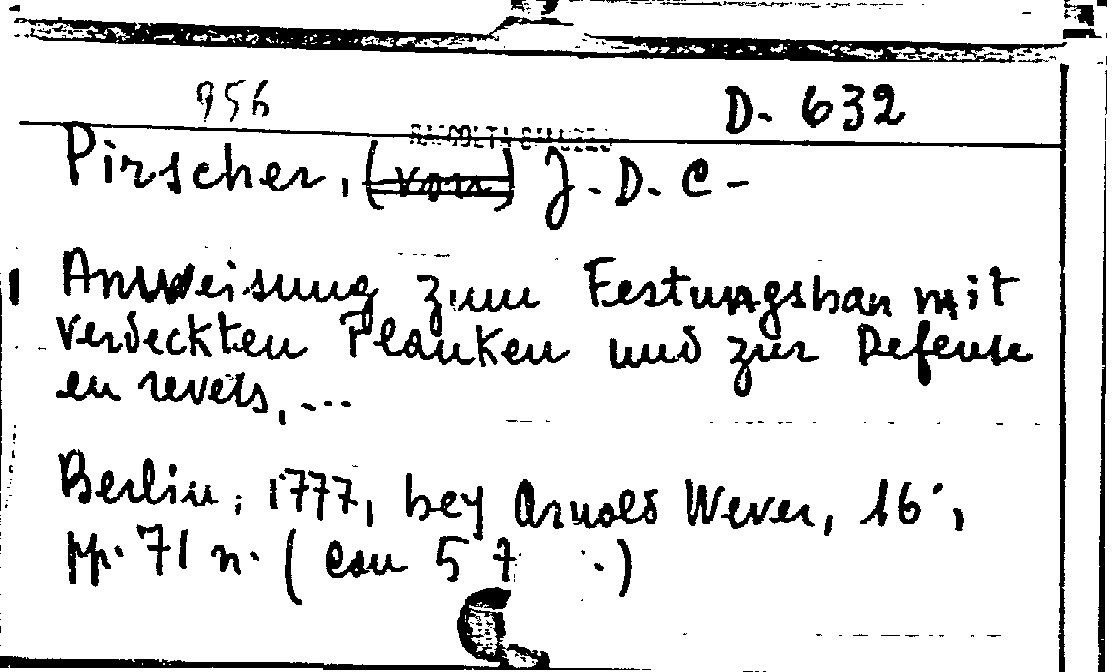 956 D. 632
RACCOLTA SALUZZO
Pirscher, (von) J. D. C -
Anweisung zum Festungsbau mit
verdeckten Flanken und zur Defense
en revers, ...
Berlin, 1777, bey Arnold Wever, 16°,
pp. 71 n. (con 5 t .)